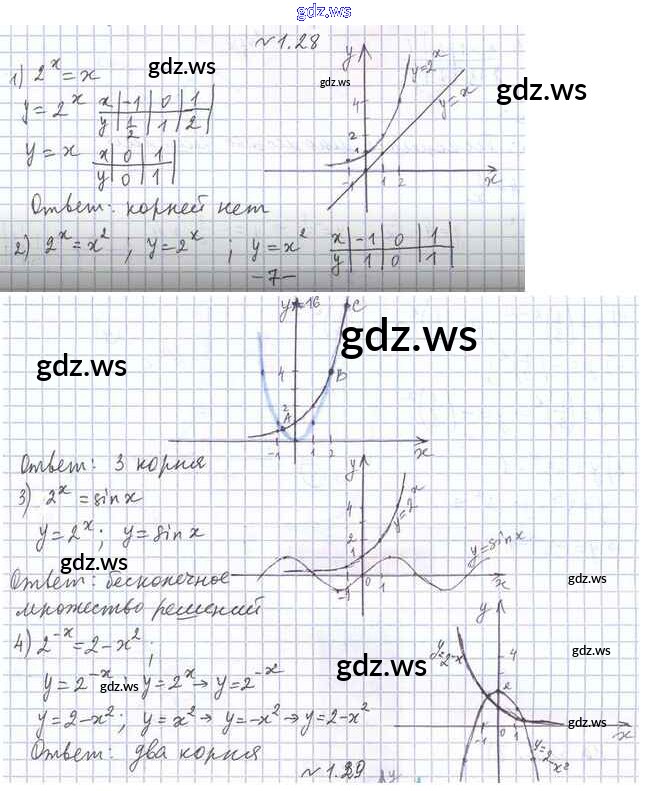 gdz.ws
№1.28
1) 2^x = x gdz.ws
y = 2^x x | -1 | 0 | 1
y | 1/2 | 1 | 2
y = x x | 0 | 1
y | 0 | 1
y y=2^x y=x 4 2 1 -1 1 2 x
gdz.ws gdz.ws
Ответ: корней нет
2) 2^x = x^2 ; y = 2^x ; y = x^2 x | -1 | 0 | 1
y | 1 | 0 | 1
-7-
y 16 C
gdz.ws gdz.ws
4 B
2 A
-1 1 2 x
Ответ: 3 корня
3) 2^x = sin x
y = 2^x ; y = sin x
y 4 2 1 y=2^x y=sin x -1 0 1 x
gdz.ws
Ответ: бесконечное gdz.ws
множество решений
4) 2^-x = 2 - x^2 ;
y = 2^-x ; y = 2^x → y = 2^-x
gdz.ws gdz.ws gdz.ws
y = 2 - x^2 ; y = x^2 → y = -x^2 → y = 2 - x^2
y 4 2 y=2^-x -1 0 1 x y=2-x^2
gdz.ws
Ответ: два корня
№1.29